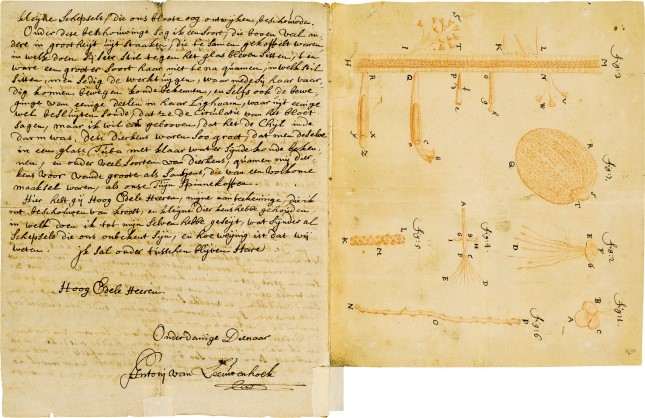 kleijne Schepsels, die ons bloote oog ontwijken, beschouwde.
Onder dese beschouwinge Sag ik een Soort, die boven veel an
dere in groothijt uijt staaken, die te Samen gekoppelt waren
in welk doen Sij Seer Stil tegen het glas bleven Sitten, ten
ware een grooter Soort haar met te na quamen, in welk Stil
Sitten, men Sedig de werktuijgen, waar mede Sij haar vaar
dig konnen bewegen konde bekennen, en Selfs ook de bewe
ginge van eenige deelen in haar Lighaam, waar uijt eenige
wel beslúijten Soúde, dat ze de Circulatie van het bloet
Sagen, maar ik wil geloven, dat het de Chijl inde
darm was, dese Dierkens waren Soo groot, dat men deselve
in een glase Tuba met klaar water Sijnde konde beken
nen, en onder veel Soorten van dierkens, quamen mij dier
kens voor vande groote als Santjens, die van een volkome
maaksel waren, als onse Spinnekoppen.
Hier hebt gij Hoog Edele Heeren, mijne aanteikeninge, die ik
vant beschouwen van kroost, en kleijne dierkens hebbe gehouden
in welk doen ik tot mijn Selven hebbe geseijt, wat Sijnder al
Schepsels die ons onbekent Sijn, en hoe weijnig is dat wij
weten. Ik Sal onder tusschen blijven Haer
Hoog Edele Heeren.
Onderdanige Dienaar
Antonj van Leeuwenhoek
fig 13
H
I
K
L
M
N
O
P
Q
R
S
T
V
W
X
Y
Z
fig 17.
Q
R
S
T
fig 15
K
L
M
fig 14
A
B
C
D
E
F
fig 12
D
E
F
G
fig 16
N
O
P
fig 11.
A
B
C